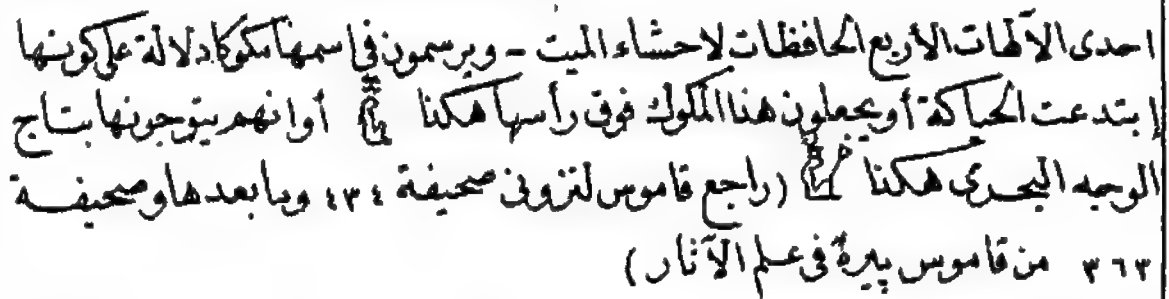 احدى الآلهات الأربع الحافظات لاحشاء الميت - ويرسمون في اسمها مكوكا دلالة على كونها
إبتدعت الحياكة أو يجعلون هذا المكوك فوق رأسها هكذا أو انهم يتوجونها بتاج
الوجه البحرى هكذا (راجع قاموس لنزونى صحيفة ٤٣٤ وما بعدها وصحيفة
٣٦٣ من قاموس پيرهٌ فى علم الآثار)